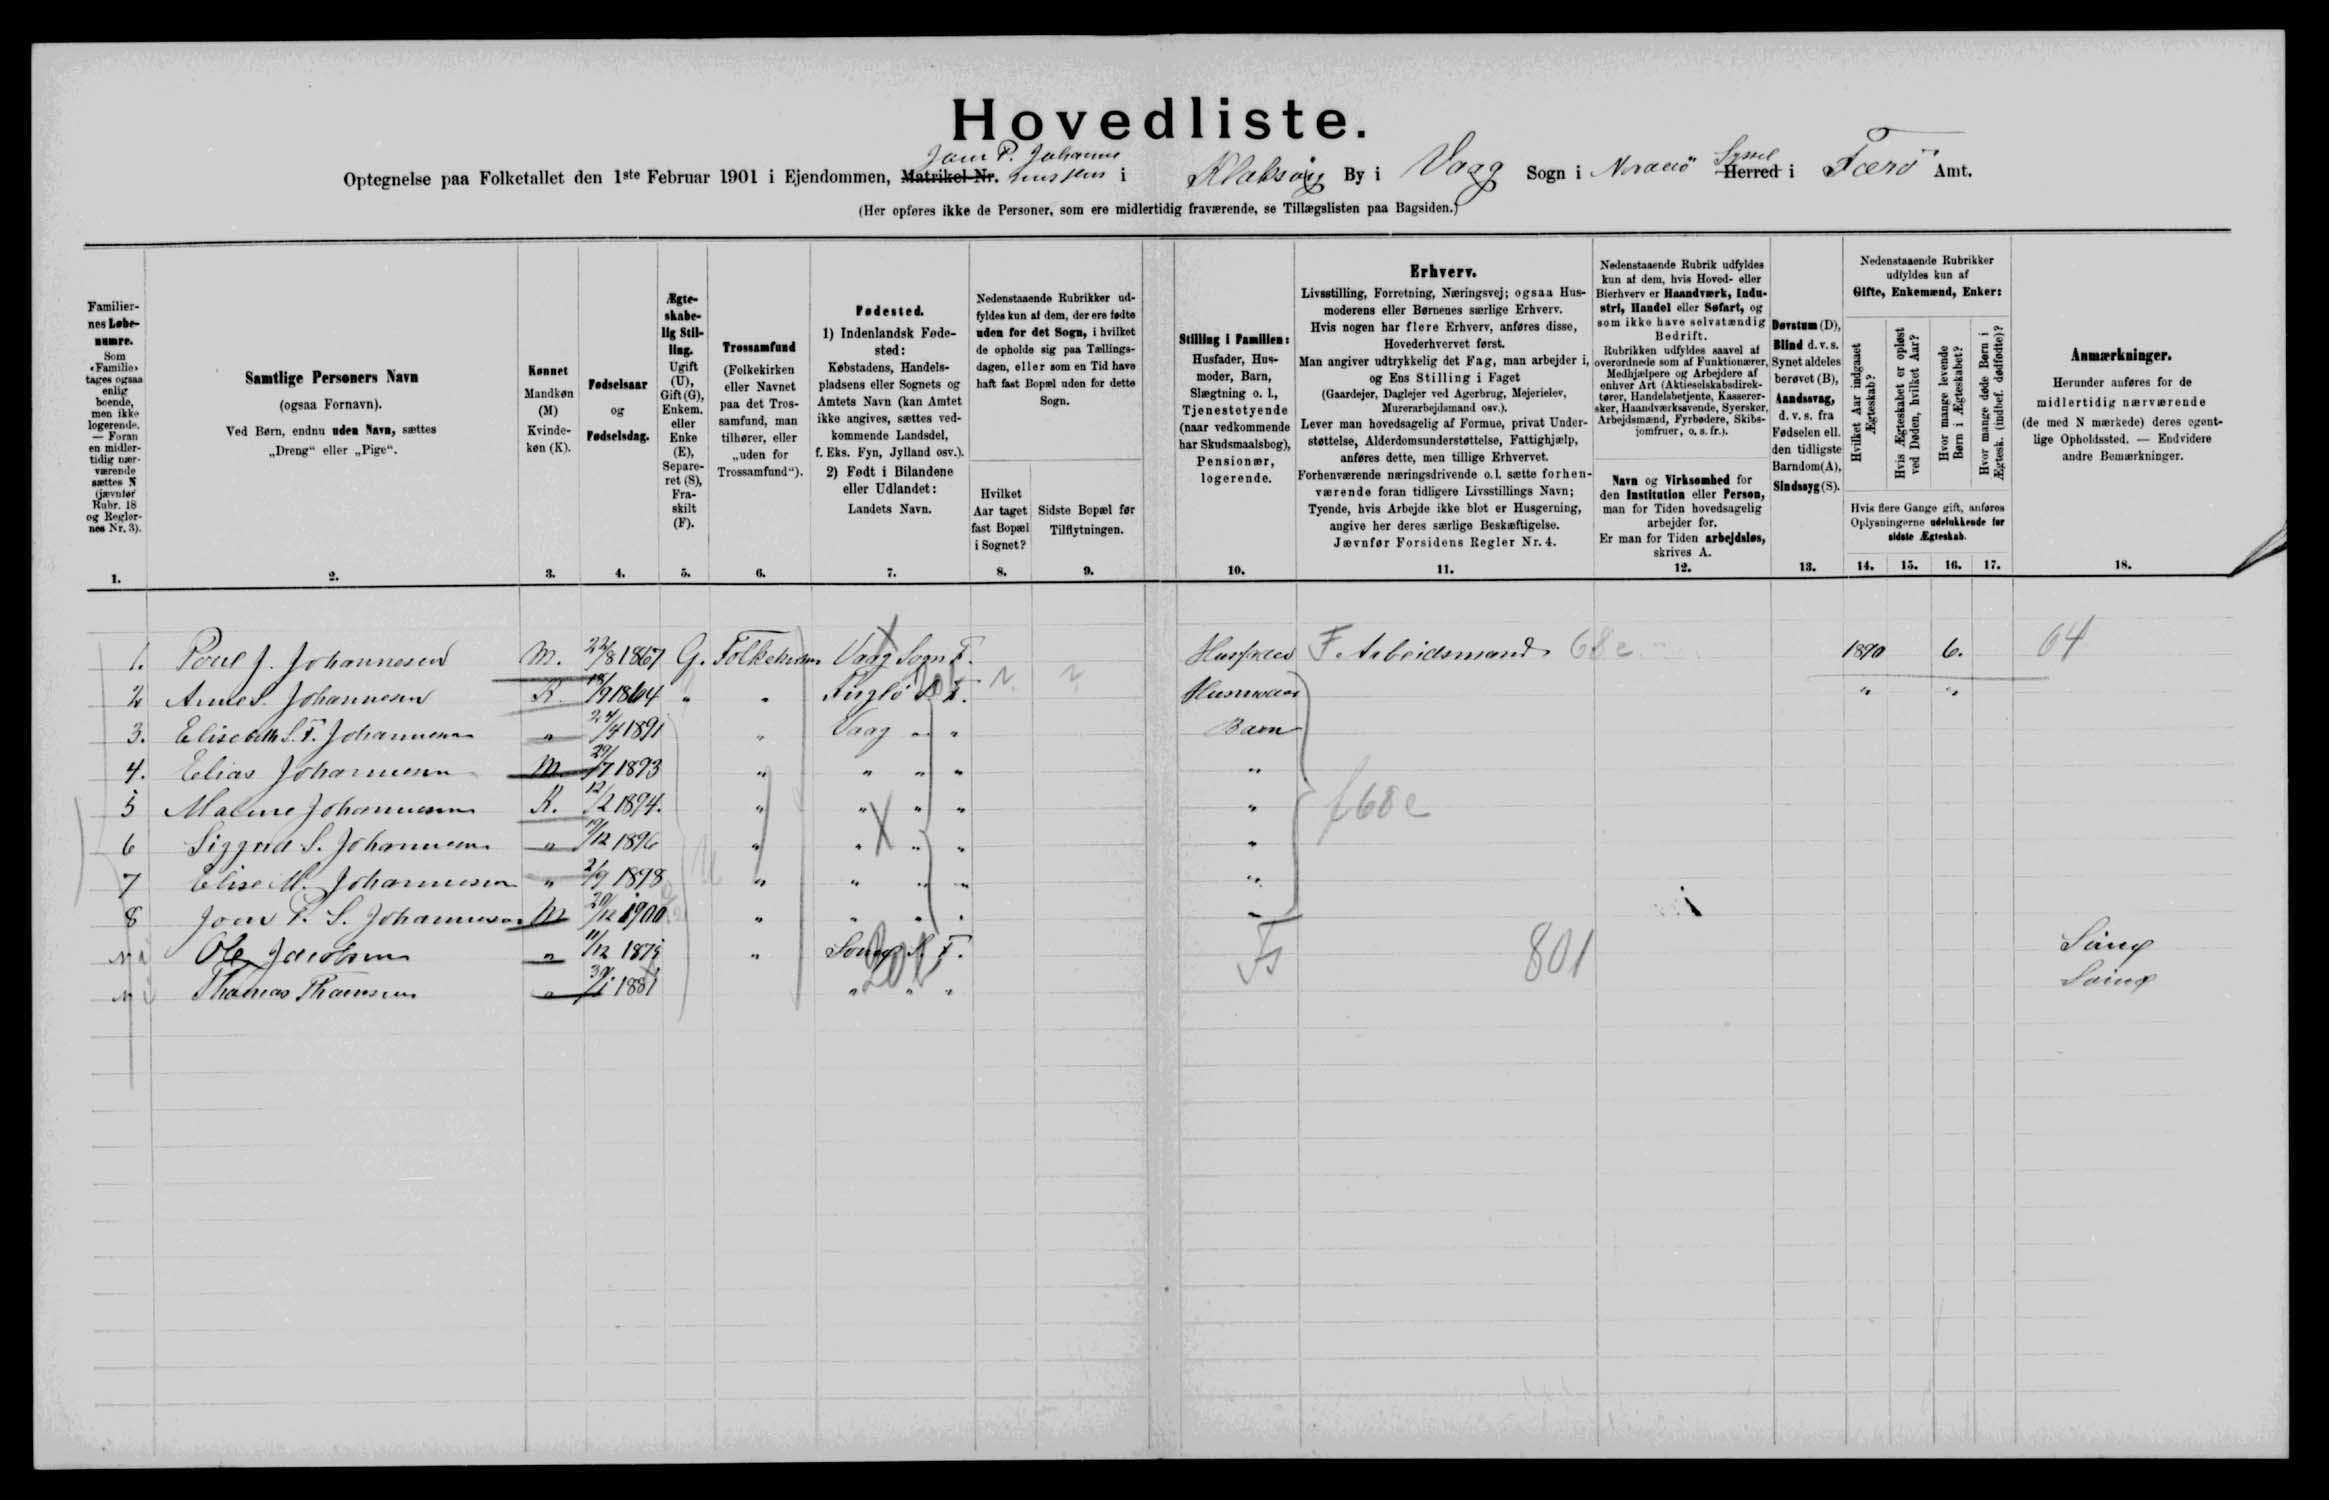 Hovedliste.
Joen P. Johanne
Optegnelse paa Folketallet den 1ste Februar 1901 i Ejendommen, Matrikel-Nr. i Klaksvig By i Vaag Sogn i Norderø Syssel Herred i Færø Amt.
(Her opføres ikke de Personer, som ere midlertidig fraværende, se Tillægslisten paa Bagsiden.)
Familiernes Løbenumre.
Som «Familie» tages ogsaa enlig boende, men ikke logerende. — Foran en midlertidig nærværende sættes N (jævnfør Rubr. 18 og Reglernes Nr. 3).
1.
Samtlige Personers Navn
(ogsaa Fornavn).
Ved Børn, endnu uden Navn, sættes „Dreng“ eller „Pige“.
2.
Kønnet
Mandkøn (M)
Kvindekøn (K).
3.
Fødselsaar
og
Fødselsdag.
4.
Ægteskabelig Stilling.
Ugift (U), Gift (G), Enkem. eller Enke (E), Separeret (S), Fraskilt (F).
5.
Trossamfund
(Folkekirken eller Navnet paa det Trossamfund, man tilhører, eller „uden for Trossamfund“).
6.
Fødested.
1) Indenlandsk Fødested:
Købstadens, Handelspladsens eller Sognets og Amtets Navn (kan Amtet ikke angives, sættes vedkommende Landsdel, f. Eks. Fyn, Jylland osv.).
2) Født i Bilandene eller Udlandet:
Landets Navn.
7.
Nedenstaaende Rubrikker udfyldes kun af dem, der ere fødte uden for det Sogn, i hvilket de opholde sig paa Tællingsdagen, eller som en Tid have haft fast Bopæl uden for dette Sogn.
Hvilket Aar taget fast Bopæl i Sognet?
8.
Sidste Bopæl før Tilflytningen.
9.
Stilling i Familien:
Husfader, Husmoder, Barn, Slægtning o. l., Tjenestetyende (naar vedkommende har Skudsmaalsbog), Pensionær, logerende.
10.
Erhverv.
Livsstilling, Forretning, Næringsvej; ogsaa Husmoderens eller Børnenes særlige Erhverv.
Hvis nogen har flere Erhverv, anføres disse, Hovederhvervet først.
Man angiver udtrykkelig det Fag, man arbejder i, og Ens Stilling i Faget
(Gaardejer, Daglejer ved Agerbrug, Mejerielev, Murerarbejdsmand osv.).
Lever man hovedsagelig af Formue, privat Understøttelse, Alderdomsunderstøttelse, Fattighjælp, anføres dette, men tillige Erhvervet.
Forhenværende næringsdrivende o. l. sætte forhenværende foran tidligere Livsstillings Navn;
Tyende, hvis Arbejde ikke blot er Husgerning, angive her deres særlige Beskæftigelse.
Jævnfør Forsidens Regler Nr. 4.
11.
Nedenstaaende Rubrik udfyldes kun af dem, hvis Hoved- eller Bierhverv er Haandværk, Industri, Handel eller Søfart, og som ikke have selvstændig Bedrift.
Rubrikken udfyldes saavel af overordnede som af Funktionærer, Medhjælpere og Arbejdere af enhver Art (Aktieselskabsdirektører, Handelsbetjente, Kasserersker, Haandværkssvende, Syersker, Arbejdsmænd, Fyrbødere, Skibsjomfruer, o. s. fr.).
Navn og Virksomhed for den Institution eller Person, man for Tiden hovedsagelig arbejder for.
Er man for Tiden arbejdsløs, skrives A.
12.
Døvstum (D), Blind d. v. s. Synet aldeles berøvet (B), Aandssvag, d. v. s. fra Fødselen ell. den tidligste Barndom (A), Sindssyg (S).
13.
Nedenstaaende Rubrikker udfyldes kun af
Gifte, Enkemænd, Enker:
Hvilket Aar indgaaet Ægteskab?
Hvis Ægteskabet er opløst ved Døden, hvilket Aar?
Hvor mange levende Børn i Ægteskabet?
Hvor mange døde Børn i Ægtesk. (indbef. dødfødte)?
Hvis flere Gange gift, anføres Oplysningerne udelukkende for sidste Ægteskab.
14. 15. 16. 17.
Anmærkninger.
Herunder anføres for de midlertidig nærværende (de med N mærkede) deres egentlige Opholdssted. — Endvidere andre Bemærkninger.
18.
1. Poul J. Johannesen M. 22/8 1867 G. Folkekirken Vaag Sogn F. Husfader F. Arbeidsmand 68 e 1890 6. 64
2 Anne S. Johannesen K. 18/9 1864 " " Fuglø S. F. Husmoder " "
3. Elisabeth S. F. Johannesen " 24/4 1891 " Vaag " " Barn
4. Elias Johannesen M. 29/7 1893 " " " " "
5 Malene Johannesen K. 12/2 1894. " " " " " f 68 e
6 Siggrid S. Johannesen " 19/12 1896 " " " " "
7 Elise M. Johannesen " 2/9 1898 " " " " "
8 Joen P. S. Johannesen M 20/12 1900 " " " " "
N Ole Jacobsen " 11/12 1875 " S. F. Fs 801
N Thomas Thomsen " 30/1 1881 " " "